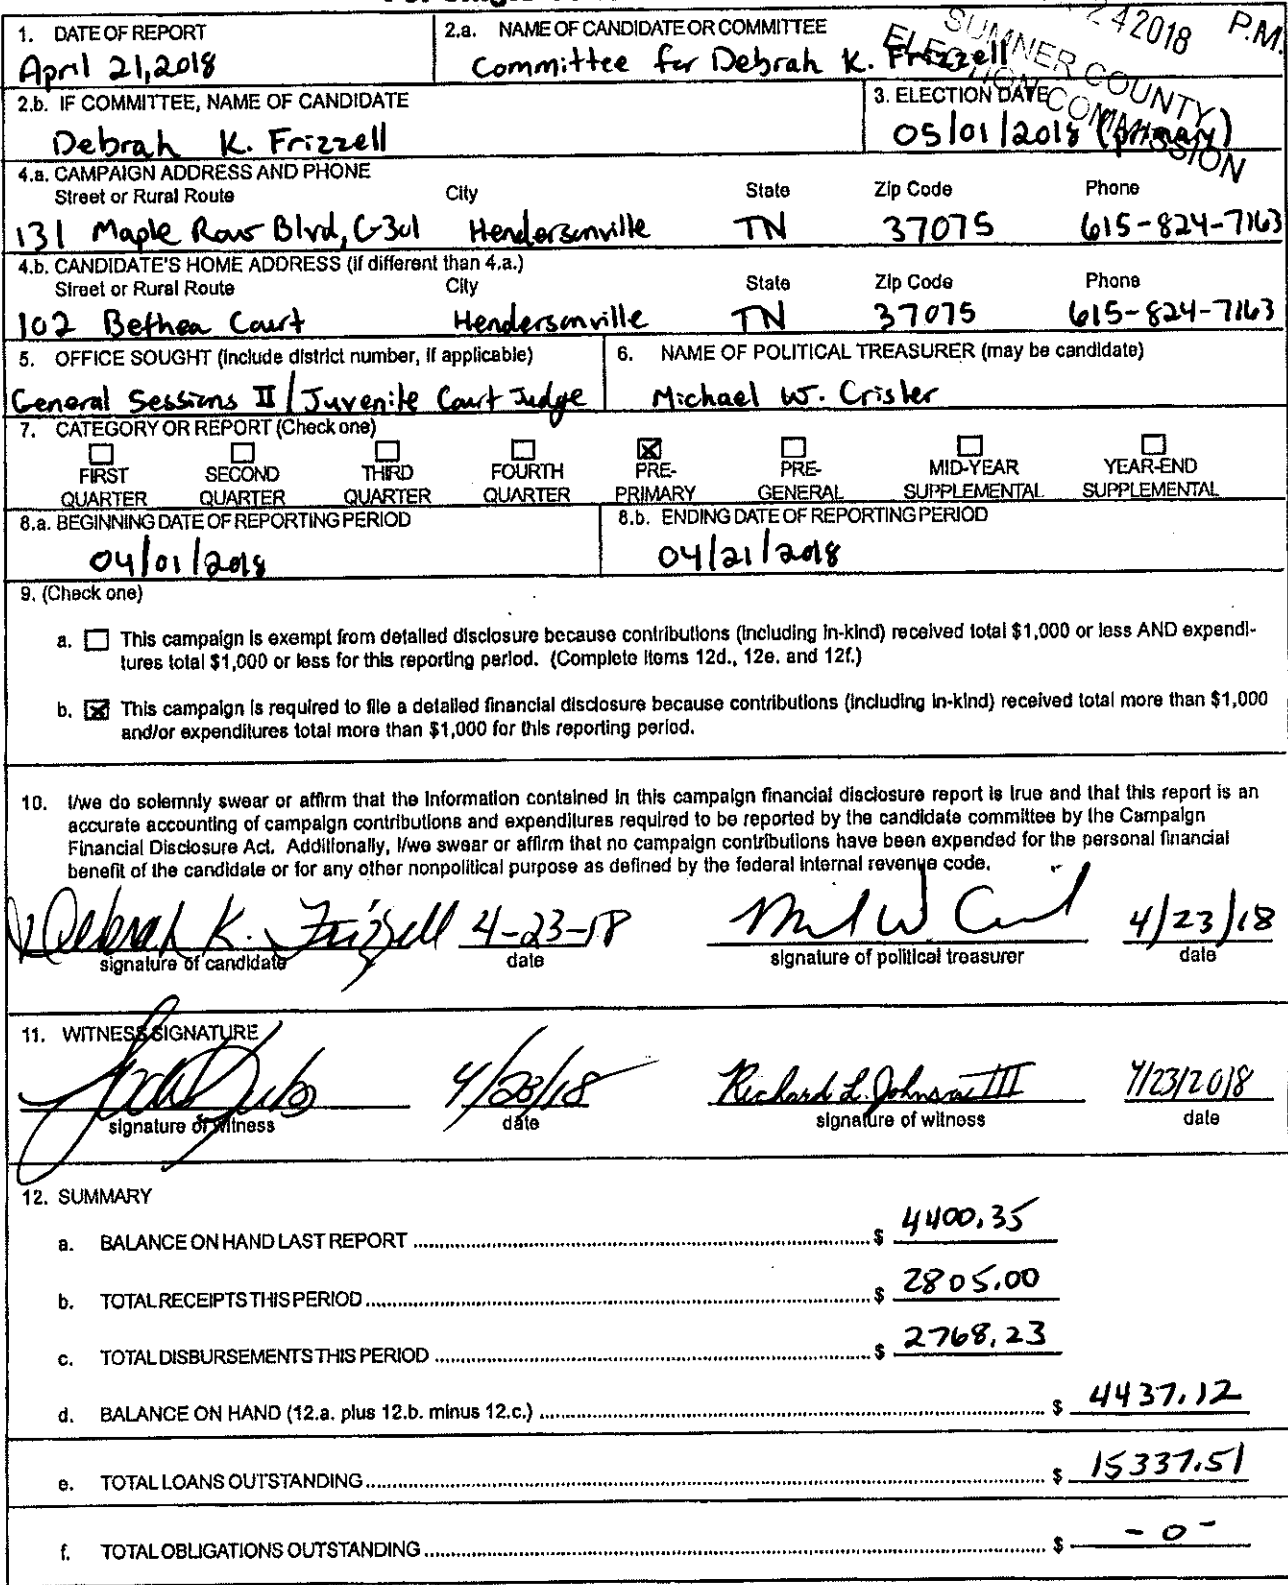 1. DATE OF REPORT
April 21, 2018
2.a. NAME OF CANDIDATE OR COMMITTEE
Committee for Debrah K. Frizzell
242018 P.M.
SUMNER COUNTY
ELECTION COMMISSION
2.b. IF COMMITTEE, NAME OF CANDIDATE
Debrah K. Frizzell
3. ELECTION DATE
05/01/2018 (primary)
4.a. CAMPAIGN ADDRESS AND PHONE
Street or Rural Route City State Zip Code Phone
131 Maple Row Blvd, C-301 Hendersonville TN 37075 615-824-7163
4.b. CANDIDATE'S HOME ADDRESS (if different than 4.a.)
Street or Rural Route City State Zip Code Phone
102 Bethea Court Hendersonville TN 37075 615-824-7163
5. OFFICE SOUGHT (include district number, if applicable)
General Sessions II / Juvenile Court Judge
6. NAME OF POLITICAL TREASURER (may be candidate)
Michael W. Crisler
7. CATEGORY OR REPORT (Check one)
FIRST QUARTER
SECOND QUARTER
THIRD QUARTER
FOURTH QUARTER
☒ PRE-PRIMARY
PRE-GENERAL
MID-YEAR SUPPLEMENTAL
YEAR-END SUPPLEMENTAL
8.a. BEGINNING DATE OF REPORTING PERIOD
04/01/2018
8.b. ENDING DATE OF REPORTING PERIOD
04/21/2018
9. (Check one)
a. ☐ This campaign is exempt from detailed disclosure because contributions (including in-kind) received total $1,000 or less AND expendi-
tures total $1,000 or less for this reporting period. (Complete items 12d., 12e. and 12f.)
b. ☒ This campaign is required to file a detailed financial disclosure because contributions (including in-kind) received total more than $1,000
and/or expenditures total more than $1,000 for this reporting period.
10. I/we do solemnly swear or affirm that the information contained in this campaign financial disclosure report is true and that this report is an
accurate accounting of campaign contributions and expenditures required to be reported by the candidate committee by the Campaign
Financial Disclosure Act. Additionally, I/we swear or affirm that no campaign contributions have been expended for the personal financial
benefit of the candidate or for any other nonpolitical purpose as defined by the federal internal revenue code.
Debrah K. Frizzell 4-23-18 4/23/18
signature of candidate date signature of political treasurer date
11. WITNESS SIGNATURE
4/23/18 Richard L. Johnson III 4/23/2018
signature of witness date signature of witness date
12. SUMMARY
a. BALANCE ON HAND LAST REPORT $ 4400.35
b. TOTAL RECEIPTS THIS PERIOD $ 2805.00
c. TOTAL DISBURSEMENTS THIS PERIOD $ 2768.23
d. BALANCE ON HAND (12.a. plus 12.b. minus 12.c.) $ 4437.12
e. TOTAL LOANS OUTSTANDING $ 15337.51
f. TOTAL OBLIGATIONS OUTSTANDING $ -0-